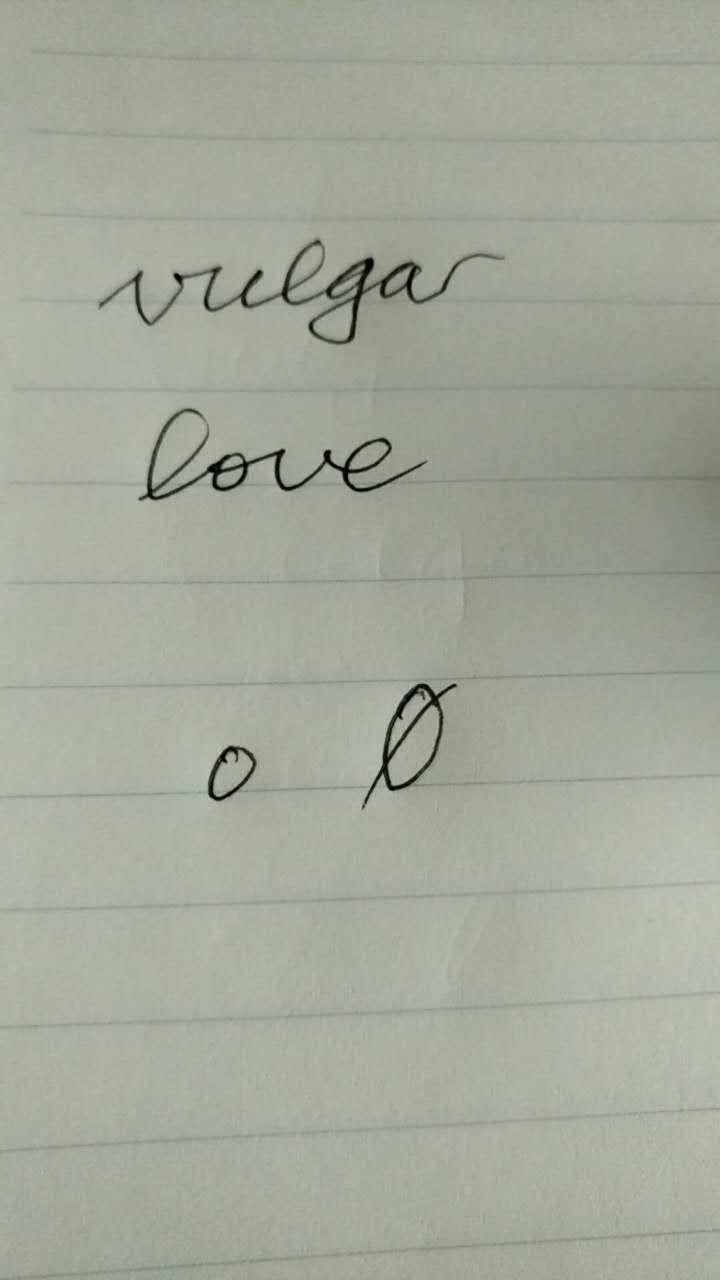 vulgar
love
o Ø